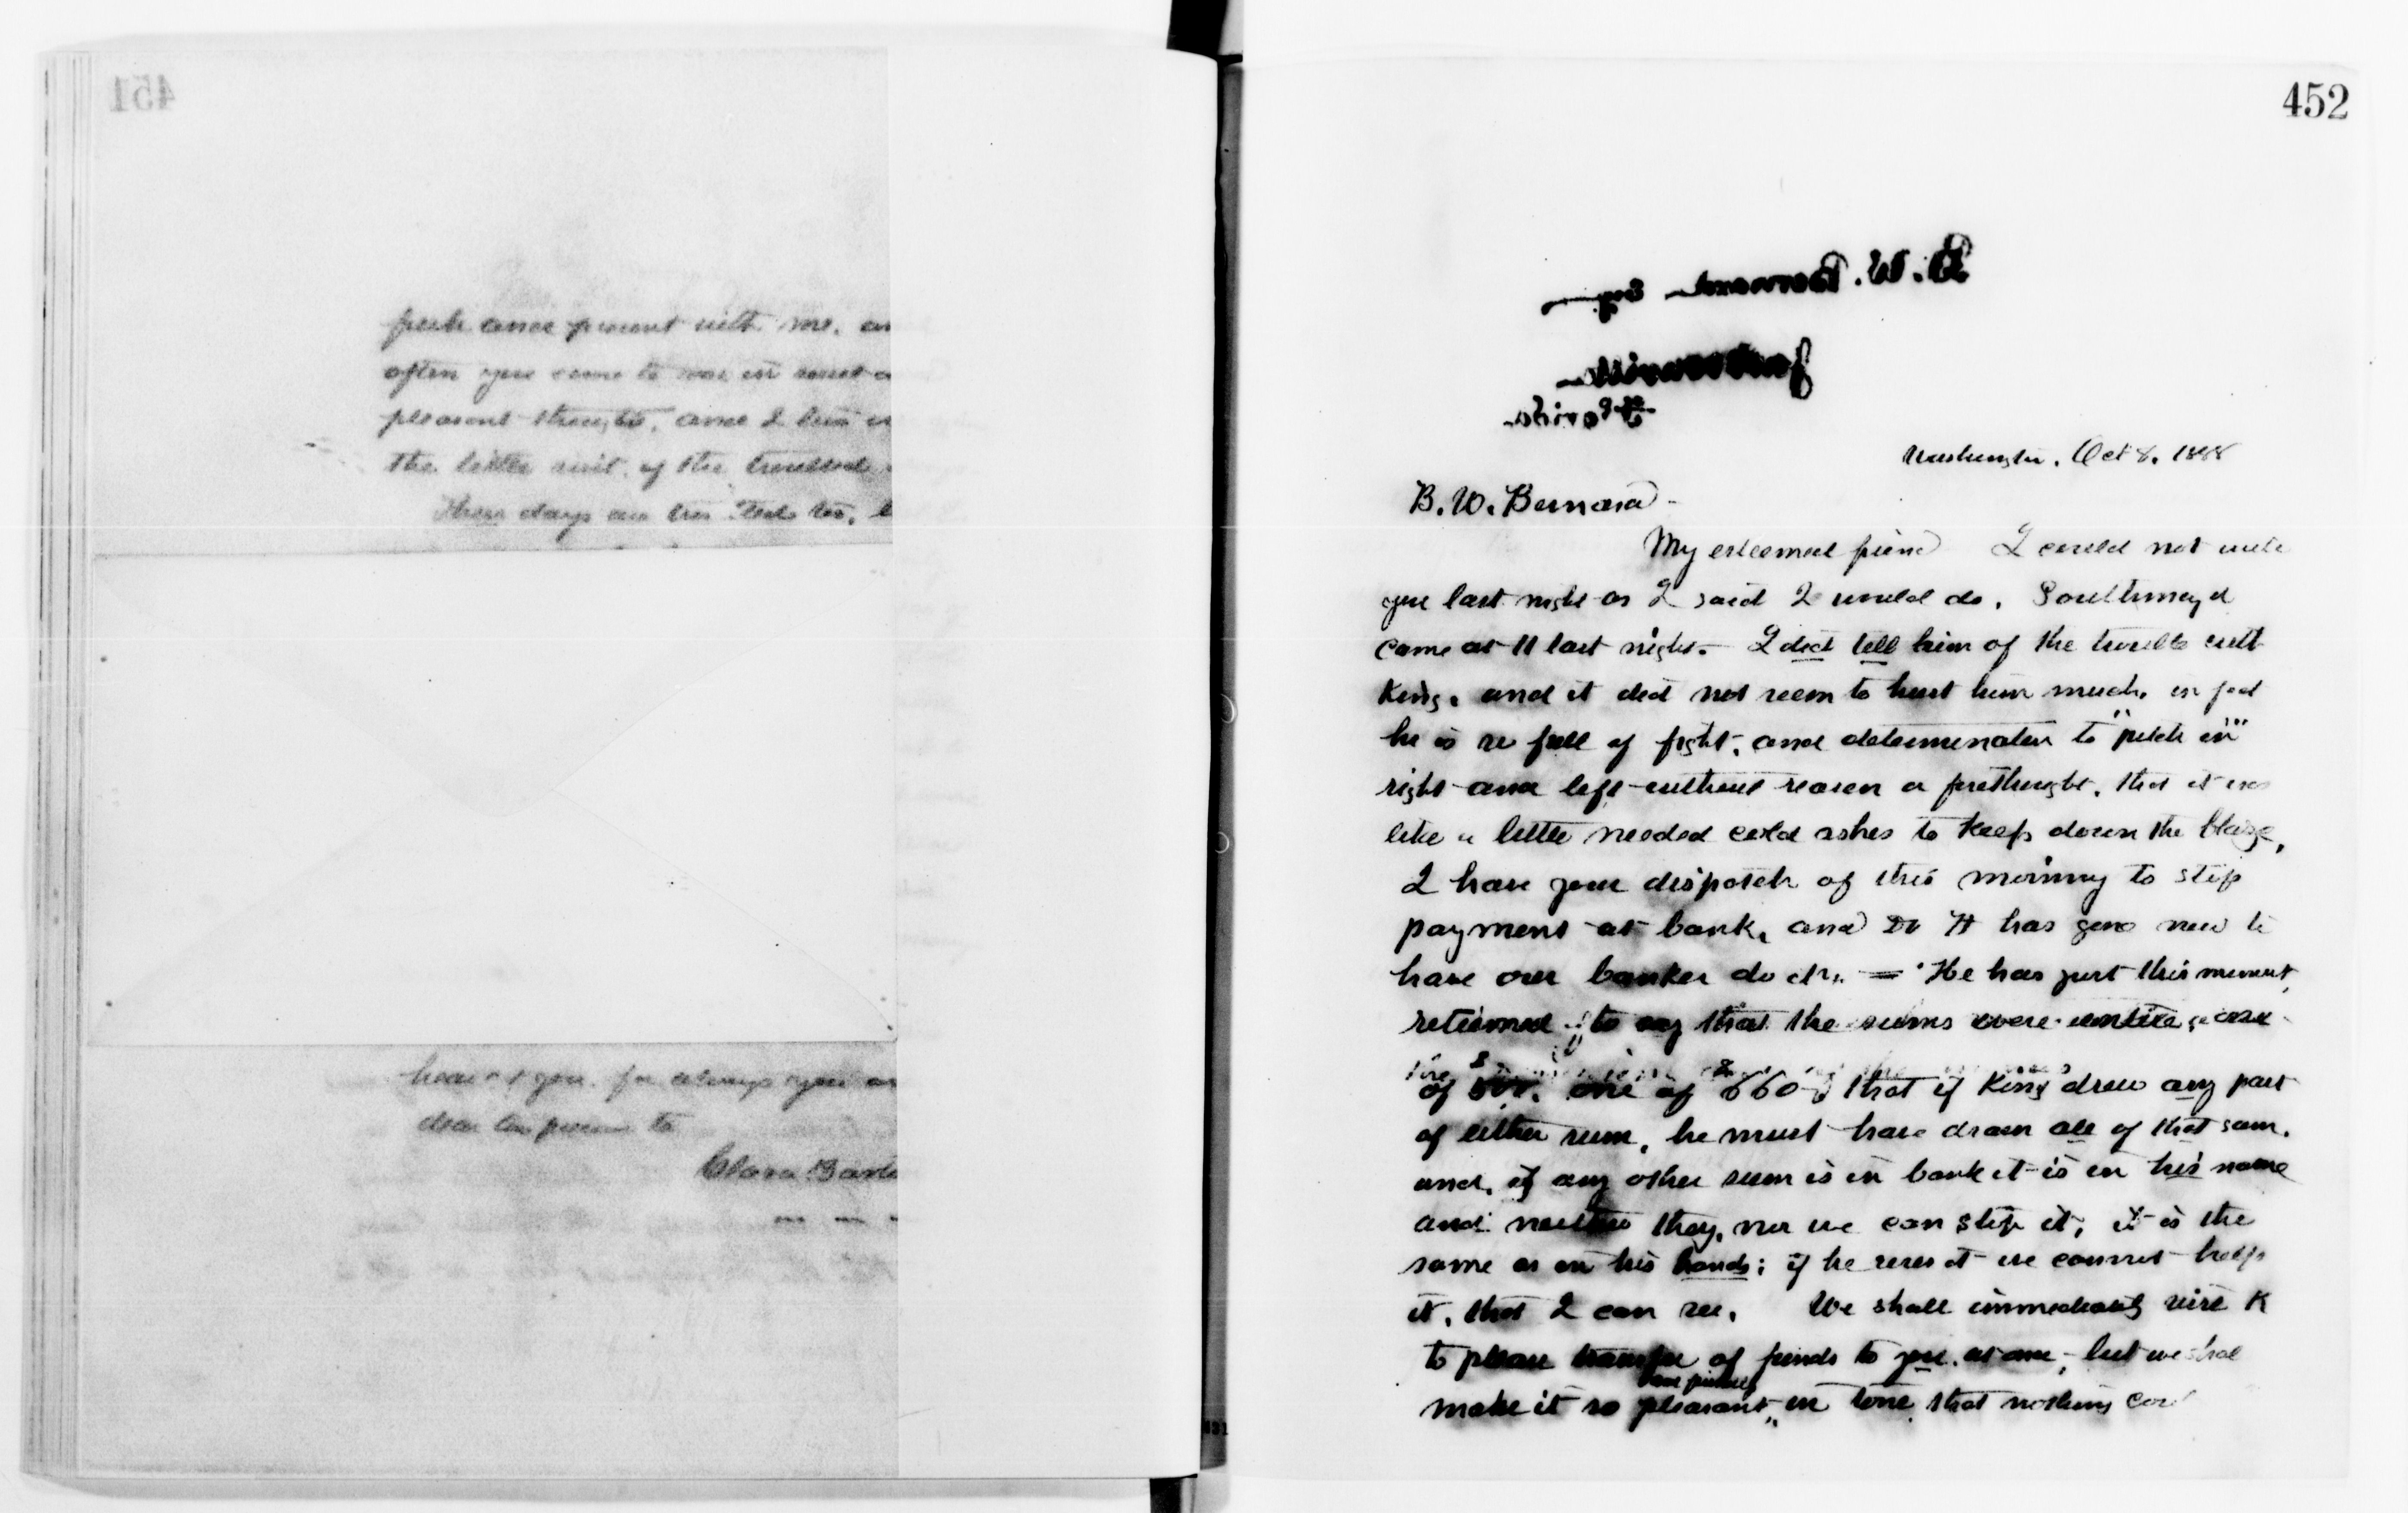 451
peek ance present with me. an
often you come to me in sweet a
pleasant thoughts, and I live in
the little visit of the
These days are too, b
hear of you. for always you are
dear
Clara Barto
452
B. W. Bernard Esq.
Jacksonville
Florida
Washington. Oct 8, 1888
B. W. Bernard -
My esteemed friend I could not write
you last night as I said I would do. Southmayd
came at 11 last night. I did tell him of the trouble with
King, and it did not seem to hurt him much, in fact
he is so full of fight, and determination to "pitch in"
right and left without reason or forethought, that it was
like a little needed cold ashes to keep down the blaze,
I have your dispatch of this morning to stop
payment at bank, and Dr H has gone now to
have our banker do it. = He has just this moment
returned to say that the sums were entire, one
of 500. one of $660 that if King drew any part
of either sum, he must have drawn all of that sum.
and, if any other sum is in bank it is in his name
and neither they, nor we can stop it, it is the
same as in his hands; if he uses it we cannot help
it, that I can see. We shall immediately wire K
to please transfer of funds to you. at once, but we shal
make it so pleasant, in tone that nothing cou